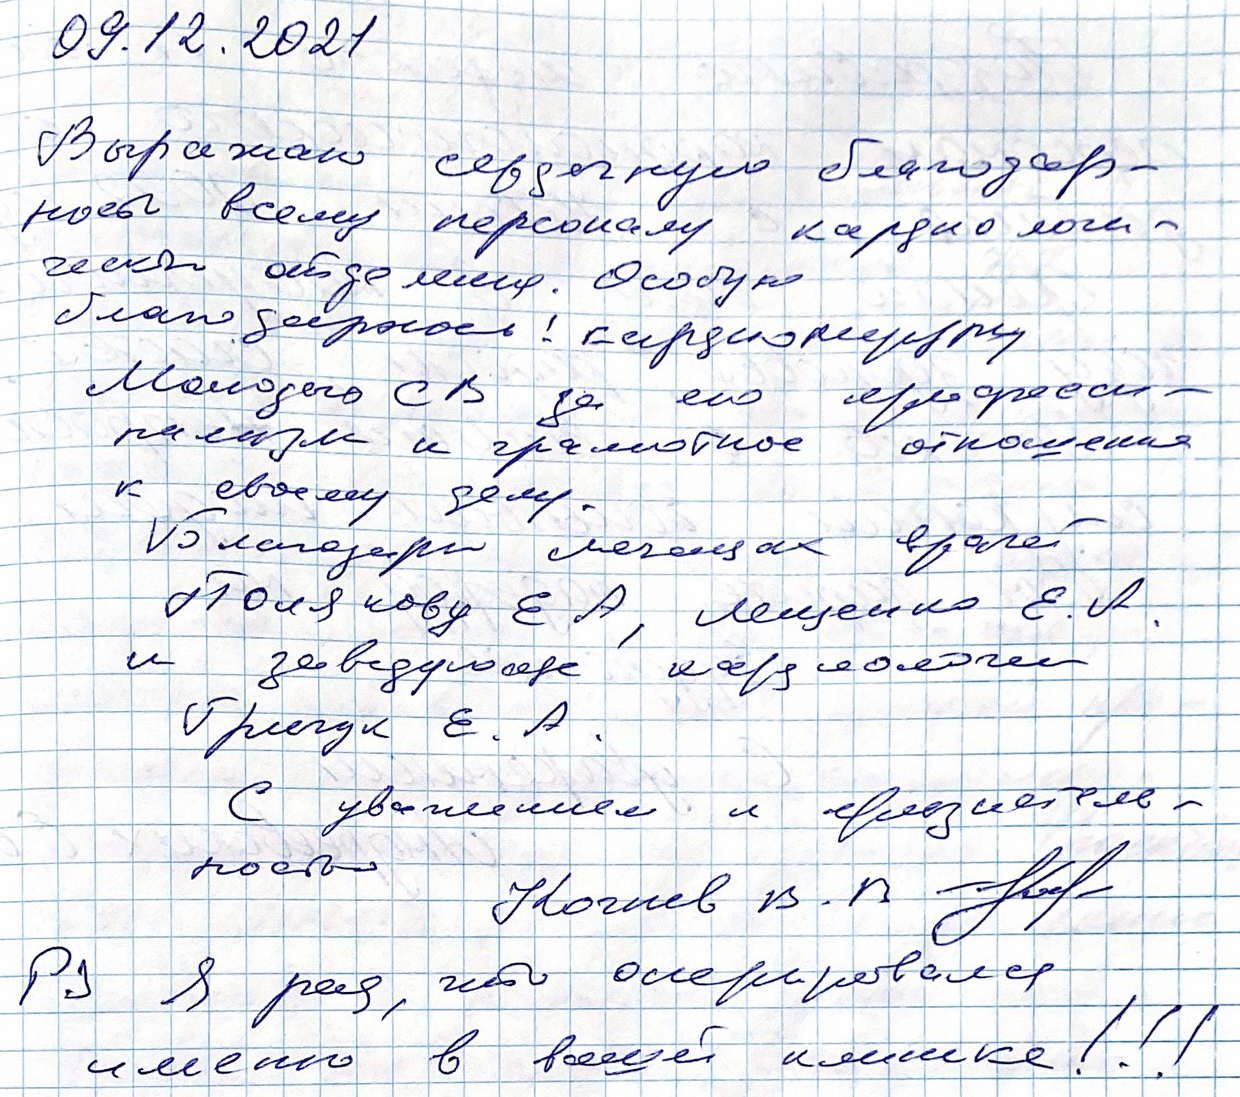 09.12.2021
Выражаю сердечную благодар-
ность всему персоналу кардиологи-
ческого отделения. Особую
благодарность! кардиохирургу
Молодого СВ за его професси-
нализм и грамотное отношение
к своему делу.
Благодарю лечащих врачей
Полякову Е А, Лещенко Е.А.
и заведующе кардиологии
Гричук Е. А.
С уважением и признатель-
ностью
В. В
PS Я рад, что оперировался
именно в вашей клинике!!!